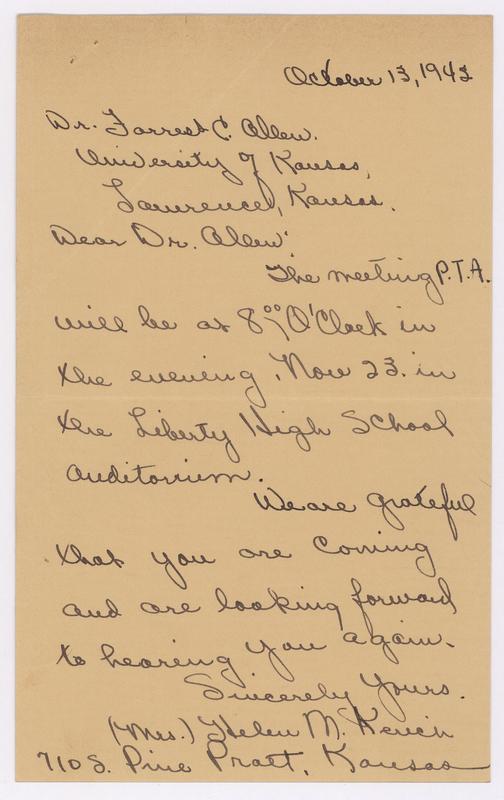 October 13, 1943
Dr. Forrest C. Allen.
University of Kansas,
Lawrence, Kansas.
Dear Dr. Allen:
The meeting P.T.A.
will be at 8:00 O'Clock in
the evening, Nov 23. in
the Liberty High School
auditorium.
We are grateful
that you are coming
and are looking forward
to hearing you again.
Sincerely Yours.
(Mrs.) Helen M.
710 S. Pine Pratt, Kansas